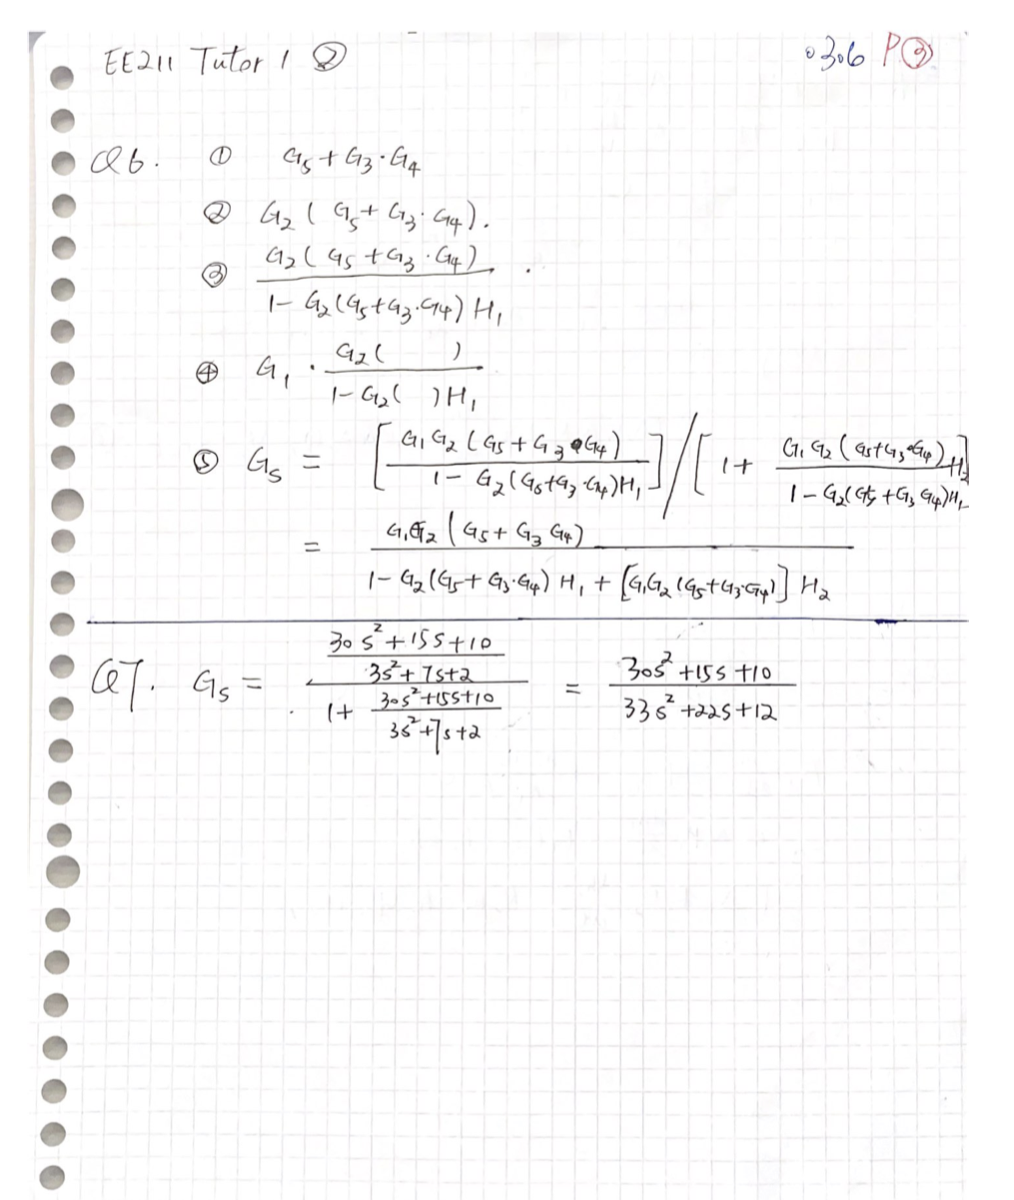 EE211 Tutor 1 ② 0306 P③
Q6. ① G5 + G3·G4
② G2 ( G5 + G3·G4 ).
③ G2 ( G5 + G3·G4 ) / 1 - G2 (G5+G3·G4) H1
④ G1 · G2 ( ) / 1 - G2 ( ) H1
⑤ Gs = [ G1 G2 (G5 + G3·G4) / 1 - G2 (G5+G3·G4) H1 ] / [ 1 + G1 G2 (G5+G3·G4) / 1 - G2 (G5 + G3 G4) H1 H2 ]
= G1 G2 (G5 + G3 G4) / 1 - G2 (G5 + G3·G4) H1 + [G1G2 (G5+G3·G4)] H2
Q7. Gs = 30s²+15s+10 / 3s²+7s+2 / 1 + 30s²+15s+10 / 3s²+7s+2 = 30s²+15s+10 / 33s²+22s+12